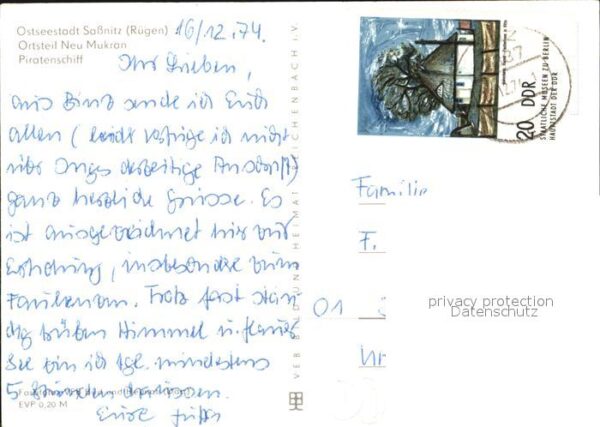 Ostseestadt Saßnitz (Rügen)
Ortsteil Neu Mukran
Piratenschiff
16/12.74.
Ihr Lieben,
aus Binz sende ich Euch
allen (leider verfüge ich nicht
über Inges derzeitige Anschrift)
ganz herzliche Grüsse. Es
ist ausgezeichnet hier zur
Erholung, insbesondere zum
Trotz fast stän-
dig trüben Himmel u.
See bin ich tgl. mindestens
5 Stunden draussen.
Eure
EVP 0,20 M
VEB BILD UND HEIMAT REICHENBACH i.V.
20 DDR
STAATLICHE MUSEEN ZU BERLIN
HAUPTSTADT DER DDR
Familie
F.
01
privacy protection
Datenschutz